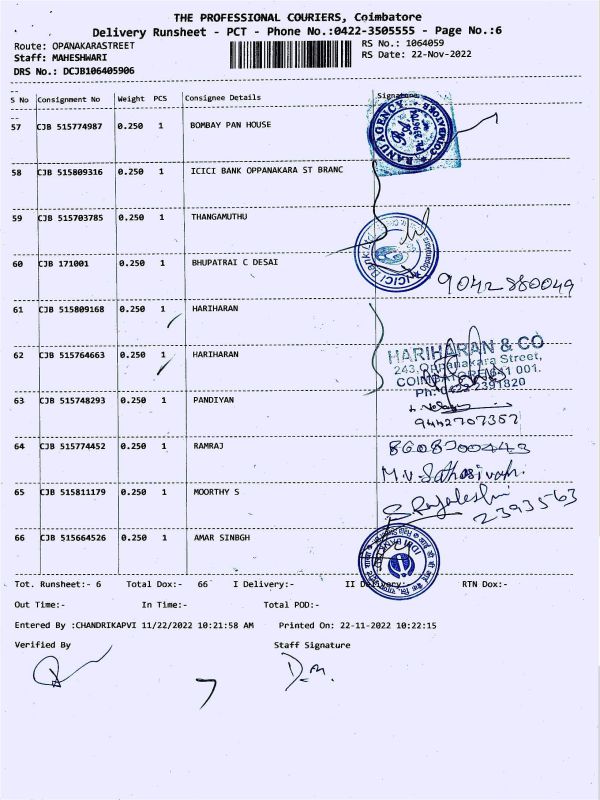 THE PROFESSIONAL COURIERS, Coimbatore
Delivery Runsheet - PCT - Phone No.:0422-3505555 - Page No.:6
Route: OPANAKARASTREET RS No.: 1064059
Staff: MAHESHWARI RS Date: 22-Nov-2022
DRS No.: DCJB106405906
S No Consignment No Weight PCS Consignee Details Signature
57 CJB 515774987 0.250 1 BOMBAY PAN HOUSE
RANU AGENCY COIMBATORE
58 CJB 515809316 0.250 1 ICICI BANK OPPANAKARA ST BRANC
59 CJB 515703785 0.250 1 THANGAMUTHU
ICICI Bank
60 CJB 171001 0.250 1 BHUPATRAI C DESAI
9042880049
61 CJB 515809168 0.250 1 HARIHARAN
62 CJB 515764663 0.250 1 HARIHARAN
HARIHARAN & CO
243, Oppanakara Street,
COIMBATORE-641 001.
Ph: 0422 2391820
63 CJB 515748293 0.250 1 PANDIYAN
9442707367
64 CJB 515774452 0.250 1 RAMRAJ
8608200443
M.V. Sathasivam.
65 CJB 515811179 0.250 1 MOORTHY S
2393563
66 CJB 515664526 0.250 1 AMAR SINBGH
Tot. Runsheet:- 6 Total Dox:- 66 I Delivery:- II Delivery:- RTN Dox:-
Out Time:- In Time:- Total POD:-
Entered By :CHANDRIKAPVI 11/22/2022 10:21:58 AM Printed On: 22-11-2022 10:22:15
Verified By Staff Signature
D.M.